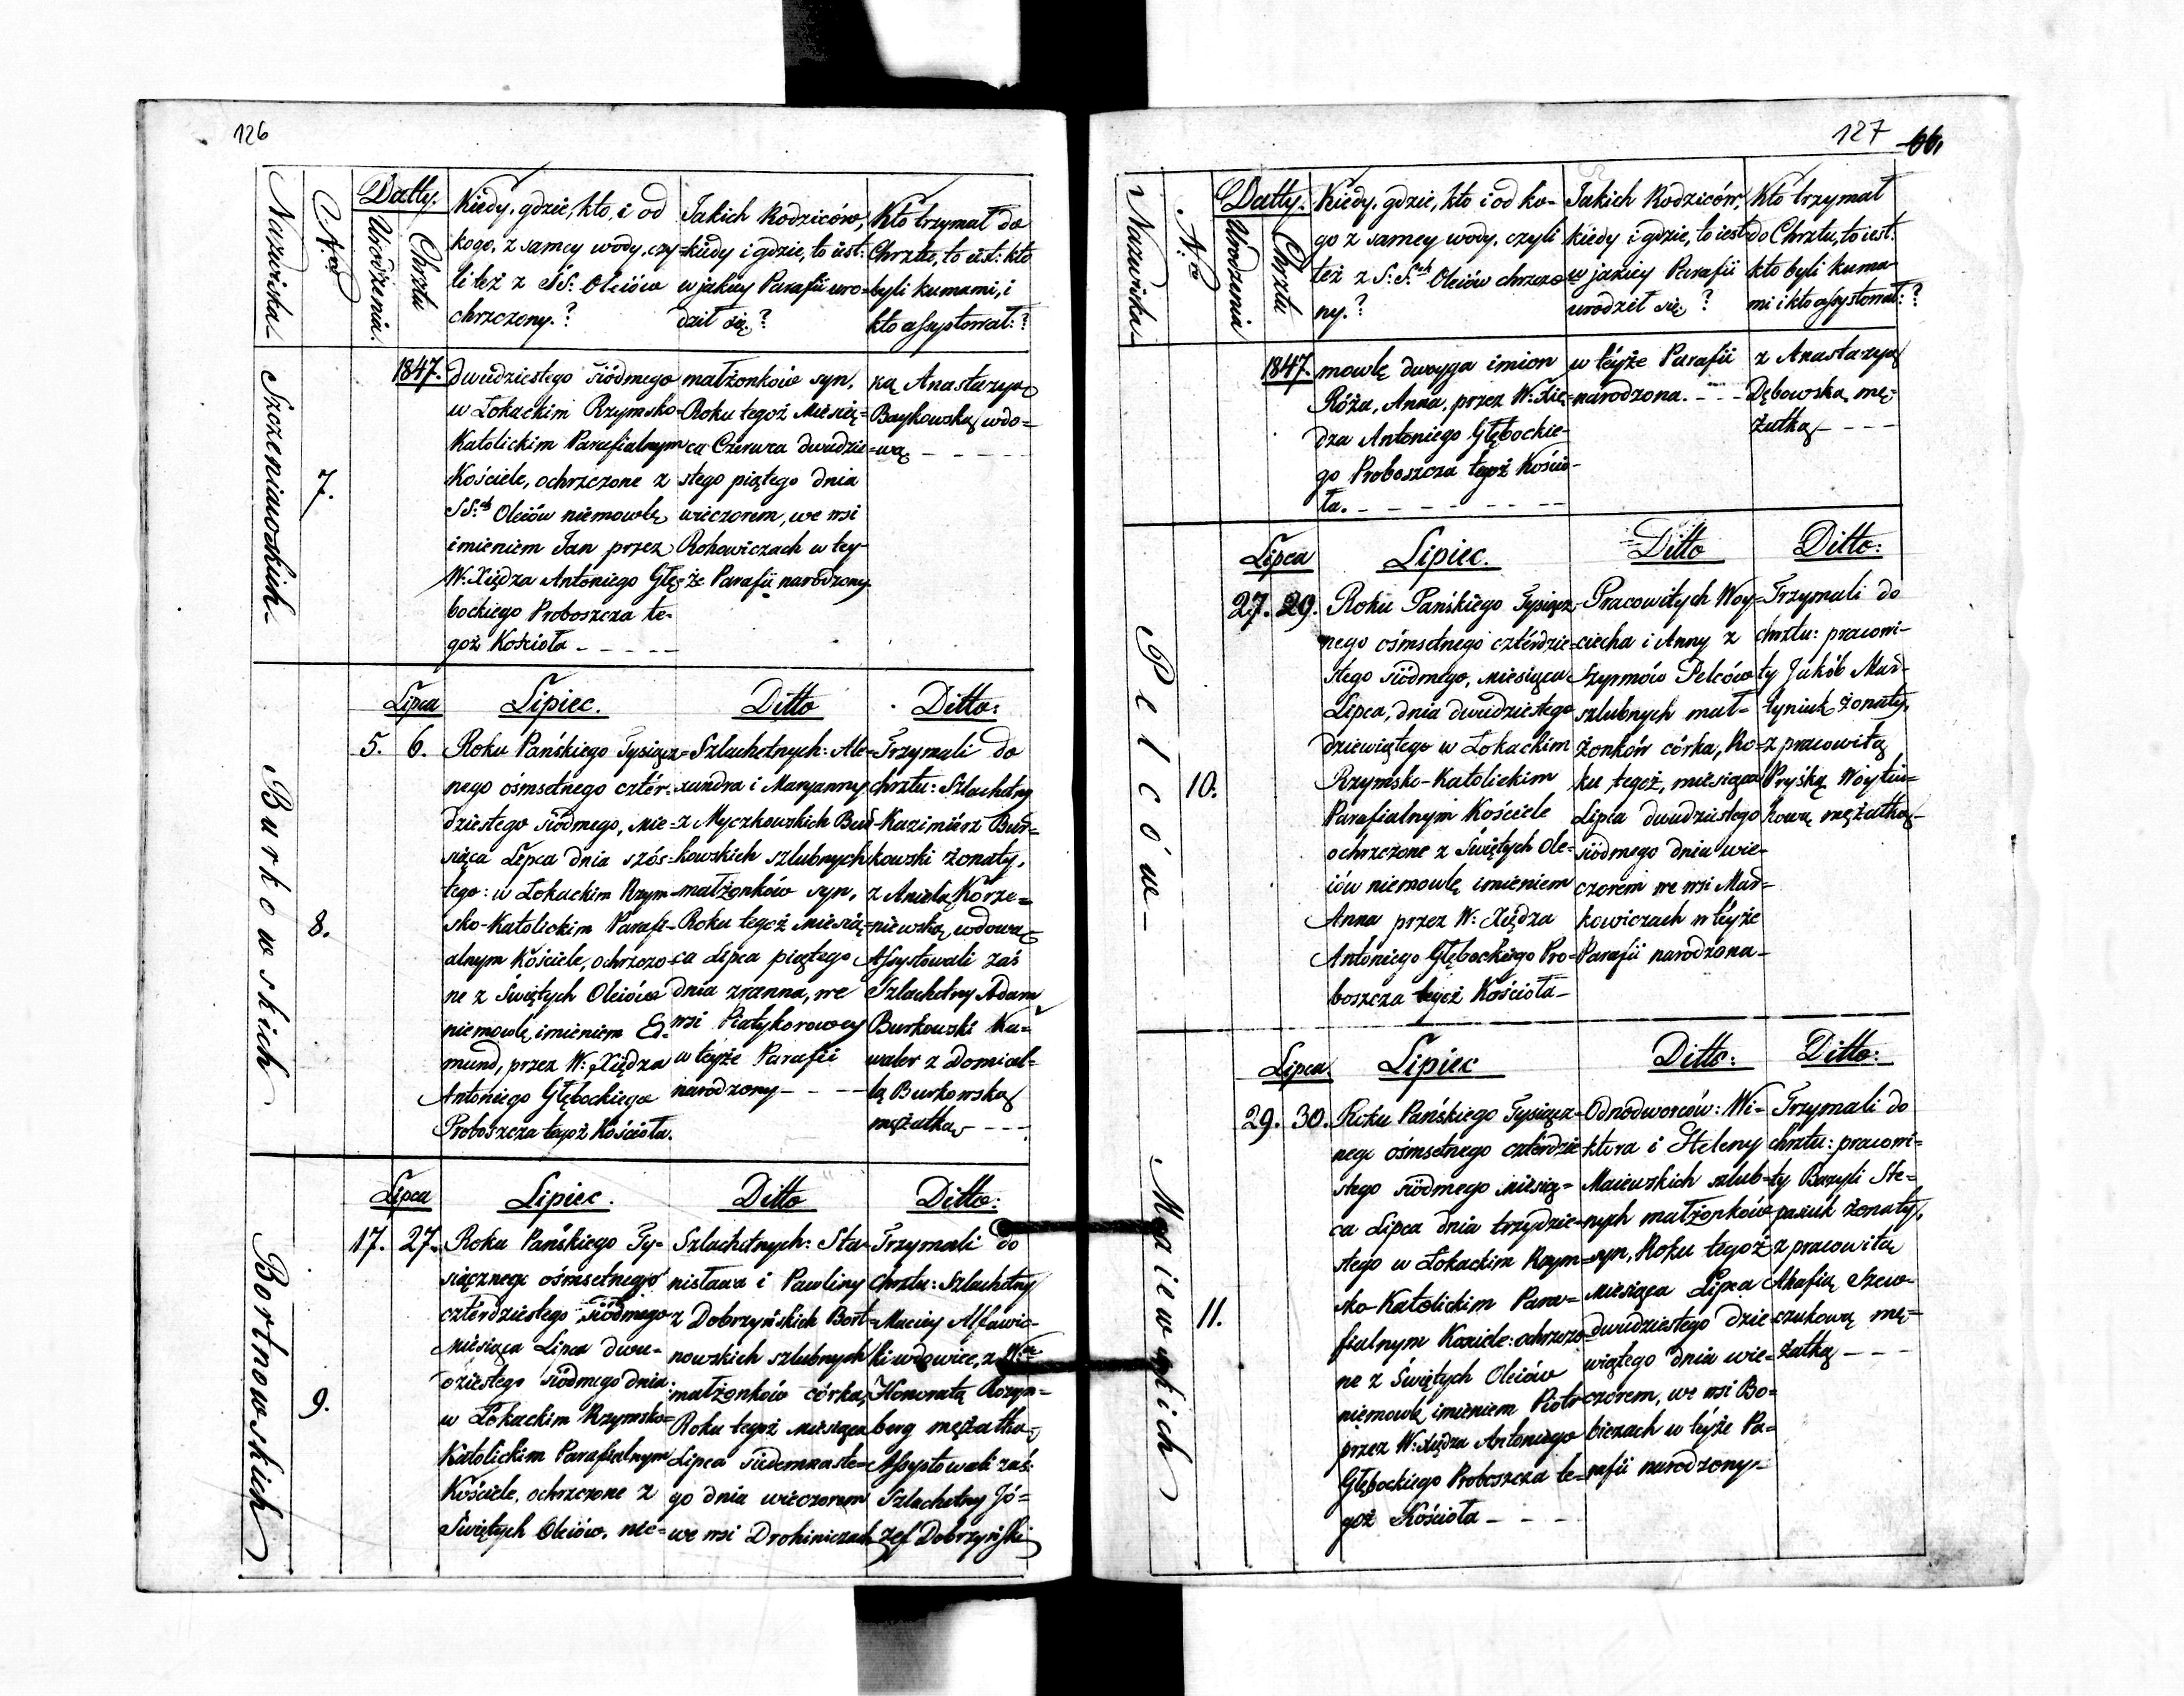 126
Nazwiska
N.ro
Datty.
Urodzenia.
Chrztu
Kiedy, gdzie, kto, i od
kogo, z samey wody, czy=
li też z SS: Oleiów
chrzczony.?
Jakich Rodziców,
kiedy i gdzie, to iest:
w jakiey Parafii uro=
dził się.?
Kto trzymał do
Chrztu, to iest: kto
byli kumami, i
kto assystował:?
Szczeniawskich
7.
1847.
dwudziestego siódmego
w Łokackim Rzymsko=
Katolickim Parafialnym
Kościele, ochrzczone z
SS:ch Oleiów niemowlę
imieniem Jan przez
W: Xiędza Antoniego Głę=
bockiego Proboszcza te-
goż Kościoła
małżonków syn,
Roku tegoż Miesią=
ca Czerwca dwudzie=
stego piątego dnia
wieczorem, we wsi
Rohowiczach w tey-
że Parafii narodzony.
ką Anastazyą
Baykowską wdo=
wą
Burkowskich
8.
Lipca
5. 6.
Lipiec.
Roku Pańskiego Tysiącz=
nego ośmsetnego cztér=
dziestego siódmego, Mie=
siąca Lipca dnia szós=
tego: w Łokackim Rzym=
sko-Katolickim Parafi=
alnym Kościele, ochrzczo=
ne z Świętych Oleiów
niemowlę imieniem Ed=
mund, przez W: Xiędza
Antoniego Głębockiego
Proboszcza tegoż Kościoła.
Ditto
Szlachetnych: Ale=
xandra i Maryanny
z Myczkowskich Bur=
kowskich szlubnych
małżonków syn,
Roku tegoż Miesią=
ca Lipca piątego
dnia zranna, we
wsi Piatykorowcy
w teyże Parafii
narodzony
Ditto:
Trzymali do
chrztu: Szlachetny
Kazimiérz Bur=
kowski żonaty,
z Anielą Korze=
niewską wdową
Assystowali zaś
Szlachetny Adam
Burkowski Ka=
waler z Domicel=
lą Burkowską
mężatką
Bortnowskich
9.
Lipca
17. 27.
Lipiec.
Roku Pańskiego Ty=
siącznego ośmsetnego
cztérdziestego siódmego
Miesiąca Lipca dwu=
dziestego siódmego dnia
w Łokackim Rzymsko=
Katolickim Parafialnym
Kościele, ochrzczone z
Świętych Oleiów, nie=
Ditto
Szlachetnych: Sta=
nisława i Pawliny
z Dobrzyńskich Bort=
nowskich szlubnych
małżonków córka,
Roku tegoż Miesiąca
Lipca siedemnaste=
go dnia wieczorem
we wsi Drohiniczach
Ditto:
Trzymali do
Chrztu: Szlachetny
Maciey
ki wdowiec, z
Honoratą Rozyn=
berg mężatką
Assystowali zaś:
Szlachetny Jó=
zef Dobrzyński
127
66.
Nazwiska
N.ro
Datty.
Urodzenia
Chrztu
Kiedy, gdzie, kto i od ko-
go z samey wody, czyli
też z S: S.ch Oleiów chrzczo=
ny.?
Jakich Rodziców,
kiedy i gdzie, to iest
w jakiey Parafii
urodził się?
Kto trzymał
do Chrztu, to iest:
kto byli kuma-
mi i kto assystował:?
1847.
mowlę dwoyga imion
Róża, Anna, przez W: Xię=
dza Antoniego Głębockie-
go Proboszcza tegoż Kościo-
ła.
w téyże Parafii
narodzona.
z Anastazyą
Dębowską mę=
żatką
Pelców
10.
Lipca
27. 29.
Lipiec.
Roku Pańskiego Tysiącz-
nego ośmsetnego cztérdzie=
stego siódmego, miesiąca
Lipca, dnia dwudziestego
dziewiątego w Łokackim
Rzymsko-Katolickim
Parafialnym Kościele
ochrzczone z Świętych Ole=
iów niemowlę imieniem
Anna przez W: Xiędza
Antoniego Głębockiego Pro=
boszcza tegoż Kościoła
Ditto
Pracowitych Woy=
ciecha i Anny z
Szymów Pelców
szlubnych mał=
żonków córka, Ro=
ku tegoż, miesiąca
Lipca dwudziestego
siódmego dnia wie-
czorem we wsi Mar=
kowiczach w téyże
Parafii narodzona
Ditto:
Trzymali do
chrztu: pracowi-
ty Jakób Mar-
tyniuk żonaty,
z pracowitą
Pryśką Woytiu=
kową mężatką
Maiewskich
11.
Lipca
29. 30.
Lipiec
Roku Pańskiego Tysiącz=
nego ośmsetnego cztérdzie=
stego siódmego Miesią=
ca Lipca dnia trzydzie=
stego w Łokackim Rzym=
sko-Katolickim Para=
fialnym Kościele: ochrzczo=
ne z Świętych Oleiów
niemowlę imieniem Piotr
przez W: Xiędza Antoniego
Głębockiego Proboszcza te=
goż Kościoła
Ditto:
Odnodworców: Wi=
ktora i Heleny
Maiewskich szlub=
nych małżonków
syn, Roku tegoż
Miesiąca Lipca
dwudziestego dzie=
wiątego dnia wie=
czorem, we wsi Bo=
biczach w téyże Pa=
rafii narodzony
Ditto:
Trzymali do
chrztu: pracowi=
ty Bazyli Ste=
paniuk żonaty,
z pracowitą
Ahafią Szew-
czukową mę=
żatką